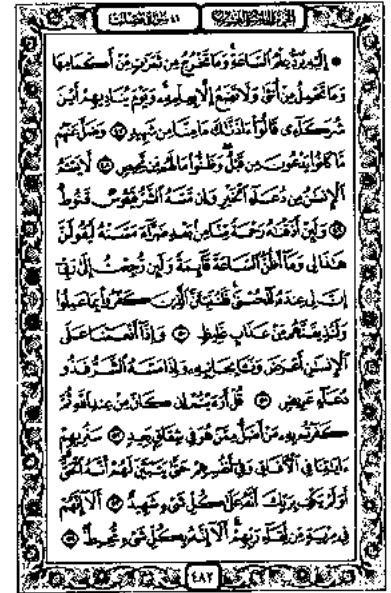 الجزء الخامس والعشرون ٤١ سورة فصلت
۞ إِلَيْهِ يُرَدُّ عِلْمُ ٱلسَّاعَةِ ۚ وَمَا تَخْرُجُ مِن ثَمَرَٰتٍ مِّنْ أَكْمَامِهَا
وَمَا تَحْمِلُ مِنْ أُنثَىٰ وَلَا تَضَعُ إِلَّا بِعِلْمِهِۦ ۚ وَيَوْمَ يُنَادِيهِمْ أَيْنَ
شُرَكَآءِى قَالُوٓا۟ ءَاذَنَّٰكَ مَا مِنَّا مِن شَهِيدٍ ٤٧ وَضَلَّ عَنْهُم
مَّا كَانُوا۟ يَدْعُونَ مِن قَبْلُ ۖ وَظَنُّوا۟ مَا لَهُم مِّن مَّحِيصٍ ٤٨ لَّا يَسْـَٔمُ
ٱلْإِنسَٰنُ مِن دُعَآءِ ٱلْخَيْرِ وَإِن مَّسَّهُ ٱلشَّرُّ فَيَـُٔوسٌ قَنُوطٌ
٤٩ وَلَئِنْ أَذَقْنَٰهُ رَحْمَةً مِّنَّا مِنۢ بَعْدِ ضَرَّآءَ مَسَّتْهُ لَيَقُولَنَّ
هَٰذَا لِى وَمَآ أَظُنُّ ٱلسَّاعَةَ قَآئِمَةً وَلَئِن رُّجِعْتُ إِلَىٰ رَبِّىٓ
إِنَّ لِى عِندَهُۥ لَلْحُسْنَىٰ ۚ فَلَنُنَبِّئَنَّ ٱلَّذِينَ كَفَرُوا۟ بِمَا عَمِلُوا۟
وَلَنُذِيقَنَّهُم مِّنْ عَذَابٍ غَلِيظٍ ٥٠ وَإِذَآ أَنْعَمْنَا عَلَى
ٱلْإِنسَٰنِ أَعْرَضَ وَنَـَٔا بِجَانِبِهِۦ وَإِذَا مَسَّهُ ٱلشَّرُّ فَذُو
دُعَآءٍ عَرِيضٍ ٥١ قُلْ أَرَءَيْتُمْ إِن كَانَ مِنْ عِندِ ٱللَّهِ ثُمَّ
كَفَرْتُم بِهِۦ مَنْ أَضَلُّ مِمَّنْ هُوَ فِى شِقَاقٍۭ بَعِيدٍ ٥٢ سَنُرِيهِمْ
ءَايَٰتِنَا فِى ٱلْءَافَاقِ وَفِىٓ أَنفُسِهِمْ حَتَّىٰ يَتَبَيَّنَ لَهُمْ أَنَّهُ ٱلْحَقُّ ۗ
أَوَلَمْ يَكْفِ بِرَبِّكَ أَنَّهُۥ عَلَىٰ كُلِّ شَىْءٍ شَهِيدٌ ٥٣ أَلَآ إِنَّهُمْ
فِى مِرْيَةٍ مِّن لِّقَآءِ رَبِّهِمْ ۗ أَلَآ إِنَّهُۥ بِكُلِّ شَىْءٍ مُّحِيطٌۢ ٥٤
٤٨٢